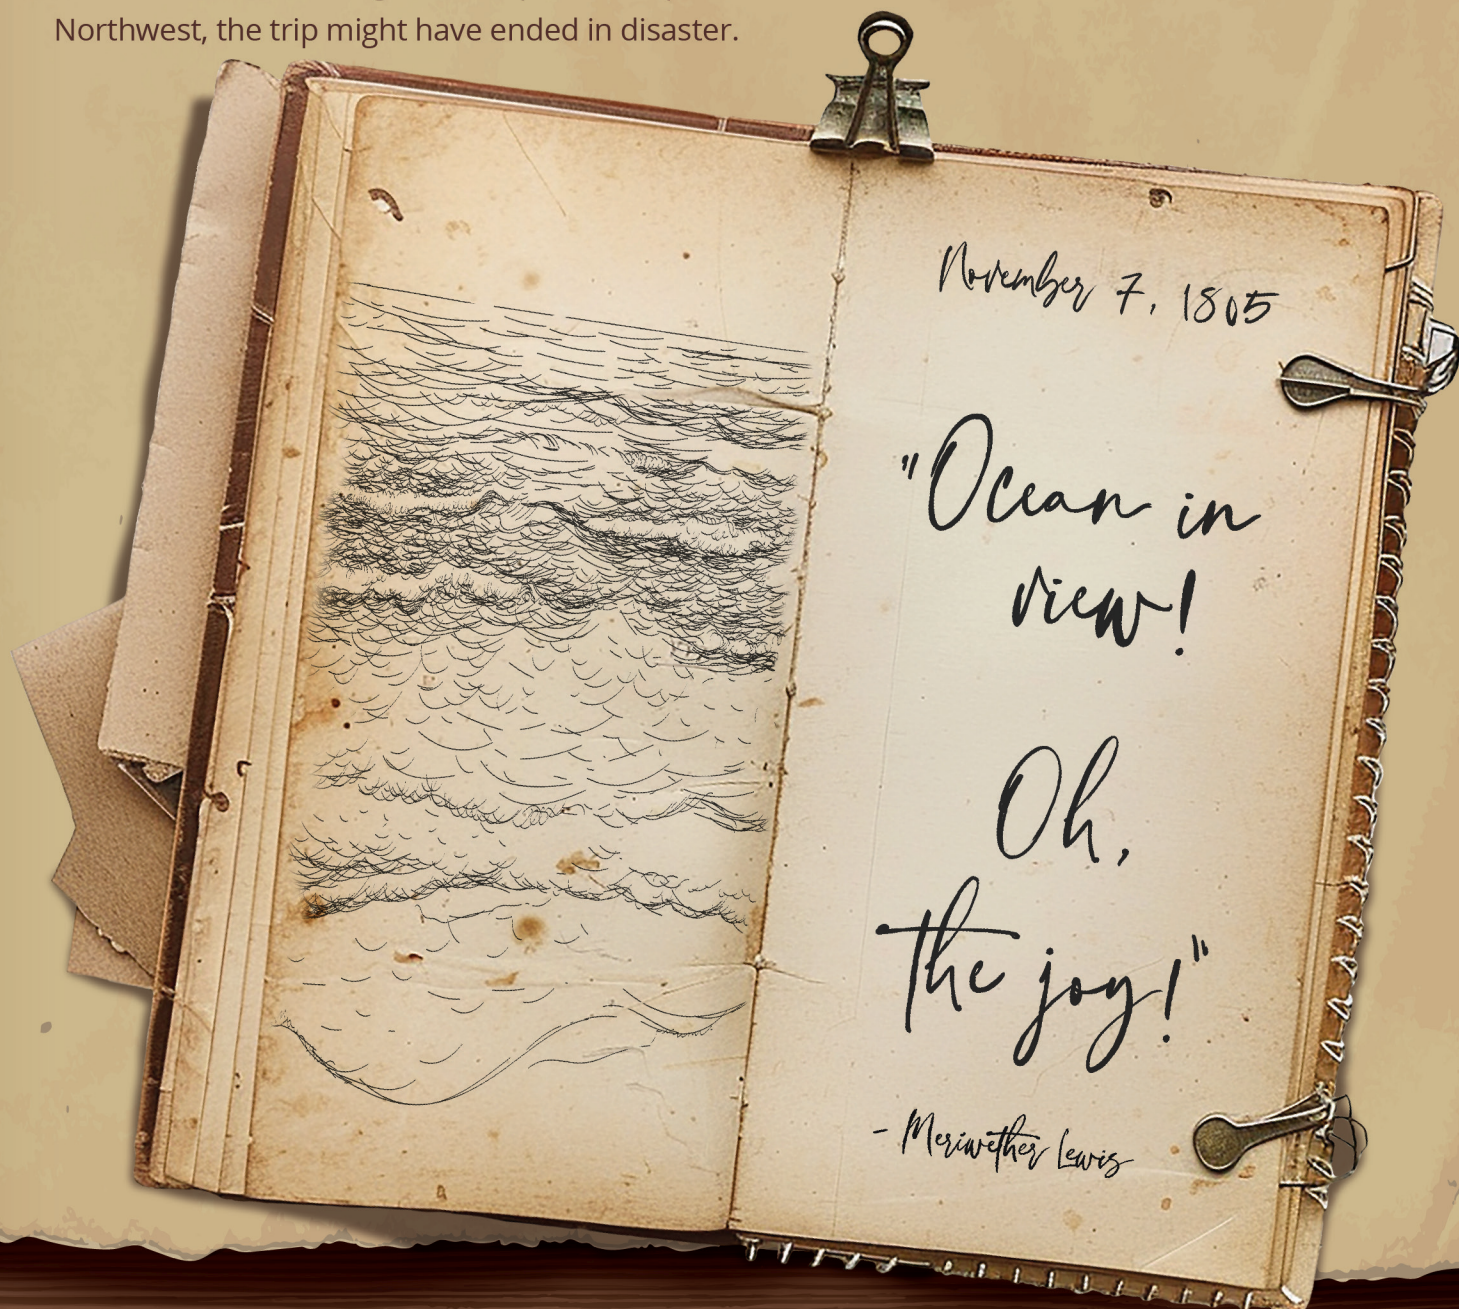 Northwest, the trip might have ended in disaster.
November 7, 1805
"Ocean in
view!
Oh,
the joy!"
- Meriwether Lewis